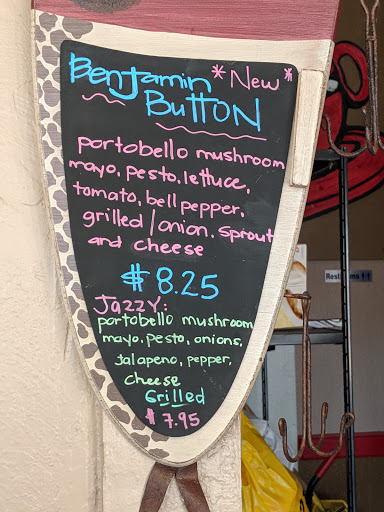 Benjamin *New*
Button
portobello mushroom
mayo, pesto, lettuce,
tomato, bell pepper,
grilled/onion, sprout
and cheese
$8.25
Jazzy:
portobello mushroom
mayo, pesto, onions,
Jalapeno, pepper,
cheese
Grilled
$7.95